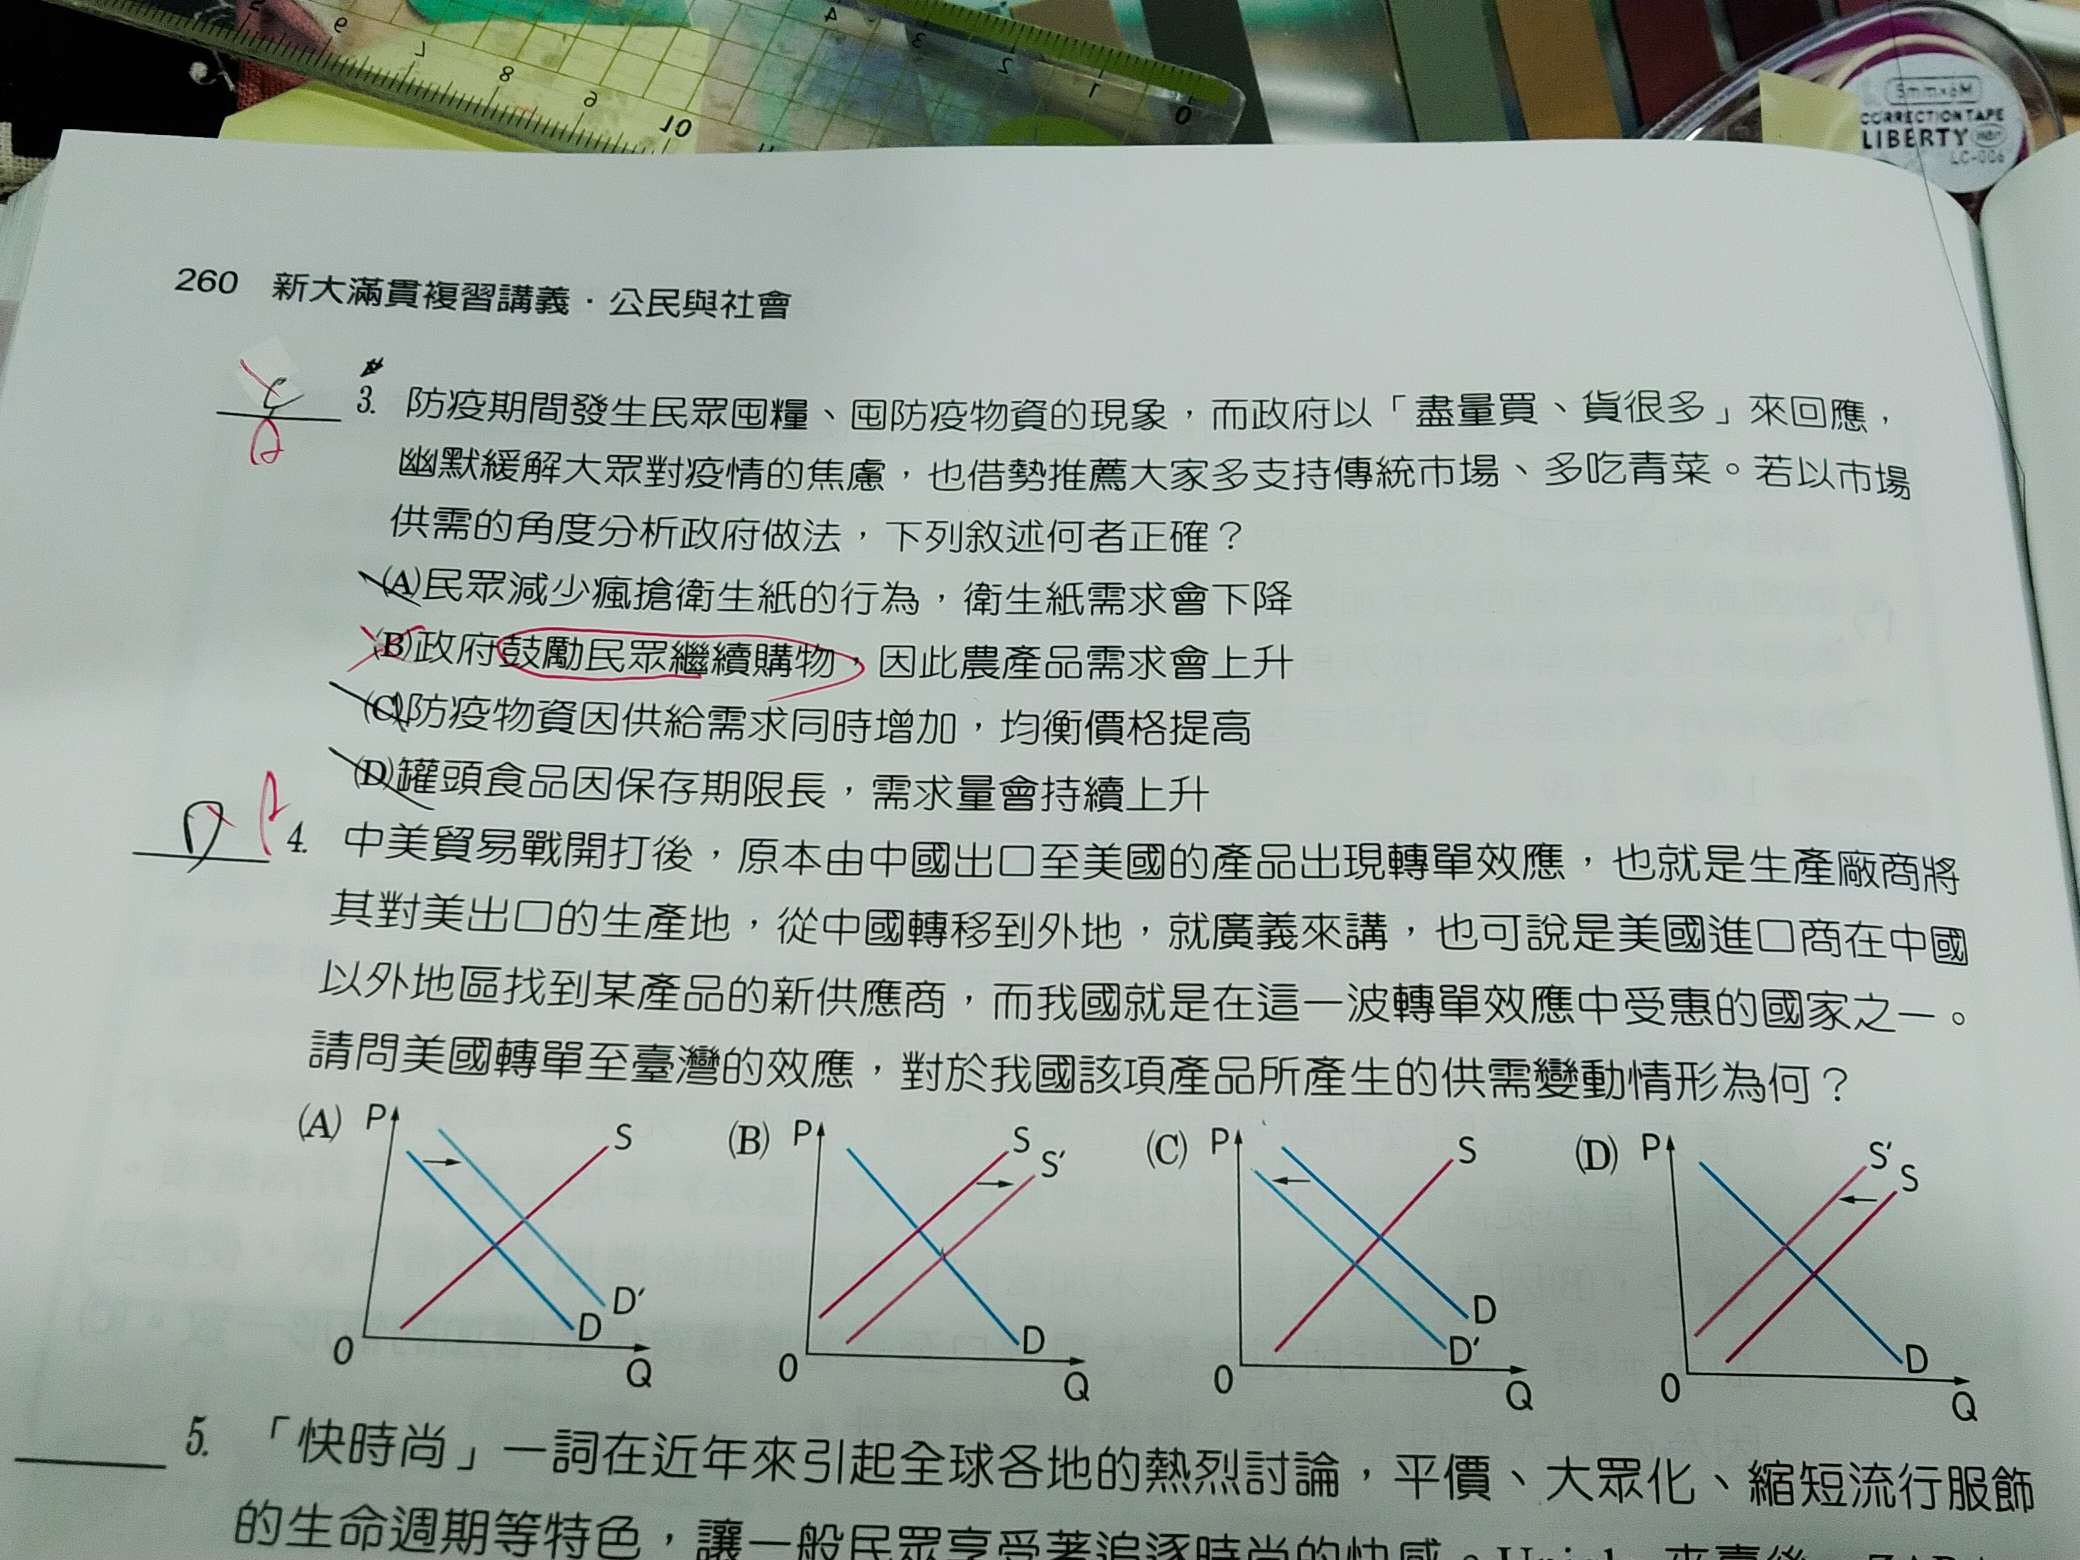 5mm×6M
CORRECTION TAPE
LIBERTY
LC-006
260 新大滿貫複習講義．公民與社會
C
3. 防疫期間發生民眾囤糧、囤防疫物資的現象，而政府以「盡量買、貨很多」來回應，
幽默緩解大眾對疫情的焦慮，也借勢推薦大家多支持傳統市場、多吃青菜。若以市場
供需的角度分析政府做法，下列敘述何者正確？
(A)民眾減少瘋搶衛生紙的行為，衛生紙需求會下降
(B)政府鼓勵民眾繼續購物，因此農產品需求會上升
(C)防疫物資因供給需求同時增加，均衡價格提高
(D)罐頭食品因保存期限長，需求量會持續上升
D
4. 中美貿易戰開打後，原本由中國出口至美國的產品出現轉單效應，也就是生產廠商將
其對美出口的生產地，從中國轉移到外地，就廣義來講，也可說是美國進口商在中國
以外地區找到某產品的新供應商，而我國就是在這一波轉單效應中受惠的國家之一。
請問美國轉單至臺灣的效應，對於我國該項產品所產生的供需變動情形為何？
(A) P S D' D 0 Q
(B) P S S' D 0 Q
(C) P S D D' 0 Q
(D) P S' S D 0 Q
5. 「快時尚」一詞在近年來引起全球各地的熱烈討論，平價、大眾化、縮短流行服飾
的生命週期等特色，讓一般民眾享受著追逐時尚的快感。Uniqlo 來臺後，ZARA